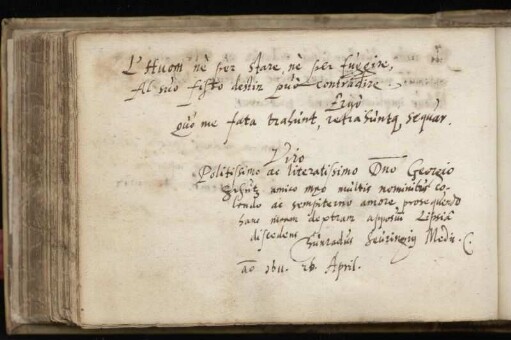 L'Huom nè per stare, nè per fuggire,
Al suo fisso destin può contradire.
Ergò
Quo me fata trahunt, retrahuntq, sequar.
Viro
Politissimo ac literatissimo Dno Georgio
amico meo multis nominibus co-
lendo ac sempiterno amore prosequendo
hanc meam dextram apposui Lipsiâ
discedens
Medic. C.
aō 1611. 26. April.